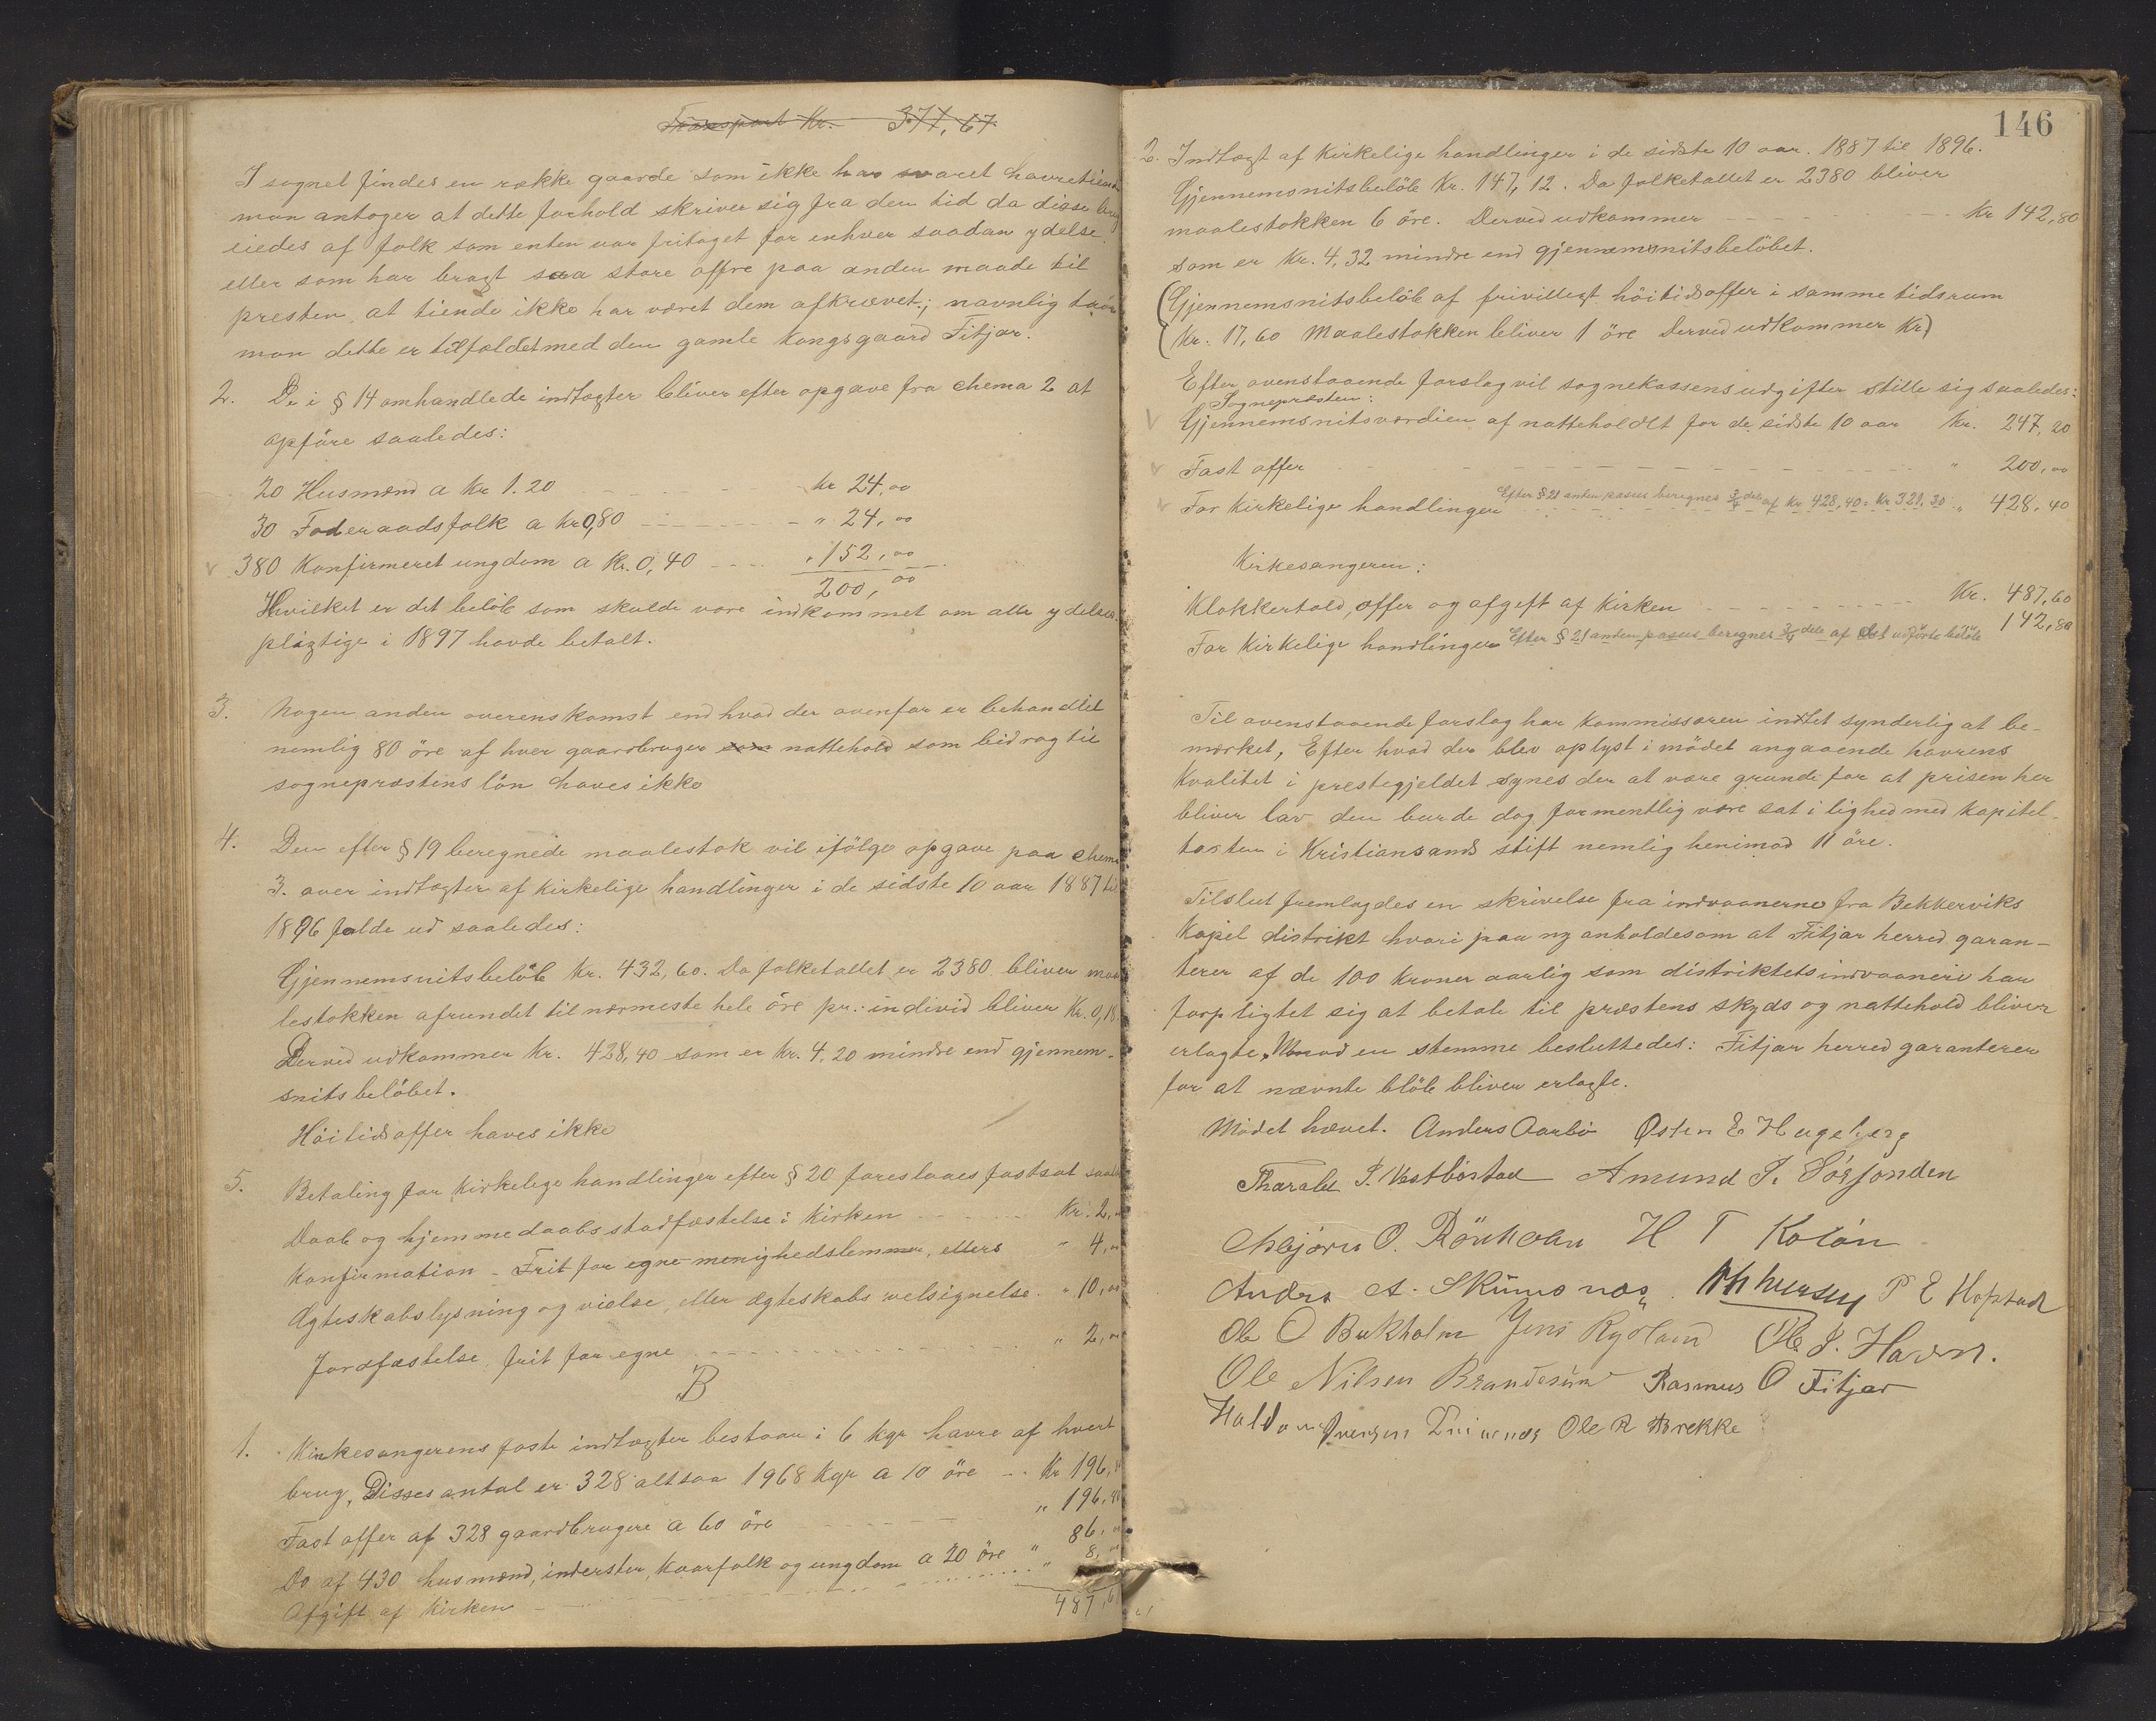 Transport Kr. 371,67
I sognet findes en række gaarde som ikke har svaret havretiende
man antager at dette forhold skriver sig fra den tid da disse brug
eiedes af folk som enten var fritaget for enhver saadan ydelse
eller som har bragt saa store offre paa anden maade til
presten, at tiende ikke har været dem afkrævet; navnlig tror
man dette er tilfældet med den gamle kongsgaard Fitjar.
2. De i § 14 omhandlede indtægter bliver efter opgave fra chema 2 at
opføre saaledes:
20 Husmænd a Kr 1.20 kr 24,00
30 Foderaadsfolk a kr 0,80 " 24,00
380 Konfirmeret ungdom a Kr. 0,40 " 152,00
200,00
Hvilket er det beløb som skulde være indkommet om alle ydelses-
pligtige i 1897 havde betalt.
3. Nogen anden overenskomst end hvad der ovenfor er behandlet
nemlig 80 öre af hver gaardbruger som nattehold som bidrag til
sogneprestens lön haves ikke
4. Den efter § 19 beregnede maalestok vil ifölge opgave paa chema
3. over indtægter af kirkelige handlinger i de sidste 10 aar 1887 til
1896 falde ud saaledes:
Gjennemsnitsbelöb Kr. 432,60. Da folketallet er 2380 bliver maa
lestokken afrundet til nærmeste hele öre pr. individ bliver Kr. 0,18.
Derved udkommer Kr. 428,40 som er Kr. 4,20 mindre end gjennem-
snitsbelöbet.
Höitidsoffer haves ikke
5. Betaling for kirkelige handlinger efter § 20 foreslaaes fastsat saal
Daab og hjemmedaabs stadfæstelse i Kirken Kr. 2,00
Konfirmation - Frit for egne menighedslemmer, ellers " 4,00
Ægteskabslysning og vielse, eller ægteskabs velsignelse. " 10,00
Jordfæstelse, frit for egne " 2,00
B
1. Kirkesangerens faste indtægter bestaar i 6 kgr havre af hvert
brug, Disses antal er 328 altsaa 1968 Kgr a 10 öre Kr 196,80
Fast offer af 328 gaardbrugere a 60 öre " 196,80
Do af 430 husmænd, inderster, kaarfolk og ungdom a 20 öre " 86,00
Afgift af Kirken " 8,00
487,60
146
2. Indtægt af Kirkelige handlinger i de sidste 10 aar. 1887 til 1896.
Gjennemsnitsbelöb Kr. 147,12. Da folketallet er 2380 bliver
maalestokken 6 öre. Derved udkommer Kr 142,80
som er Kr. 4,32 mindre end gjennemsnitsbelöbet.
(Gjennemsnitsbelöb af frivilligt höitidsoffer i samme tidsrum
Kr. 17,60 Maalestokken bliver 1 öre Derved udkommer Kr)
Efter ovenstaaende forslag vil sognekassens udgifter stille sig saaledes:
Sognepræsten:
Gjennemsnitsværdien af natteholdt for de sidste 10 aar Kr. 247,20
Fast offer " 200,00
For Kirkelige handlinger Efter § 21 anden passus beregnes 3/4 dele af Kr 428,40 = Kr 321,30 " 428,40
Kirkesangeren:
Klokkertold, offer og afgift af Kirken Kr. 487,60
For Kirkelige handlinger Efter § 21 anden passus beregnes 3/4 dele af det udförte belöb 142,80
Til ovenstaaende forslag har kommissæren intet synderlig at be-
mærket, Efter hvad der blev oplyst i mödet angaaende havrens
Kvalitet i prestegjeldet synes der at være grunde for at prisen her
bliver lav den burde dog formentlig være sat i lighed med kapitel-
taxten i Kristiansands stift nemlig henimod 11 öre.
Tilslut fremlagdes en skrivelse fra indvaanerne fra Bekkerviks
Kapel distrikt hvori paa ny anholdes om at Fitjar herred garan-
terer af de 100 Kroner aarlig som distriktets indvaanere har
forpligtet sig at betale til præstens skyds og nattehold bliver
erlagte, Mmod en stemme besluttedes: Fitjar herred garanterer
for at nævnte blöb bliver erlagte.
Mödet hævet. Anders Aarbö Østen E Hageberg
Tharald P. Vestböstad Amund P. Sörfonden
Asbjörn O. Rönholm H T Koløn
Anders A. Skumsnæs. P E Hopstad
Ole O Bakholm Jens Rydland Ole J. Havn.
Ole Nilsen Brandesund Rasmus O Fitjar
Haldor Iversen Ole R Brekke